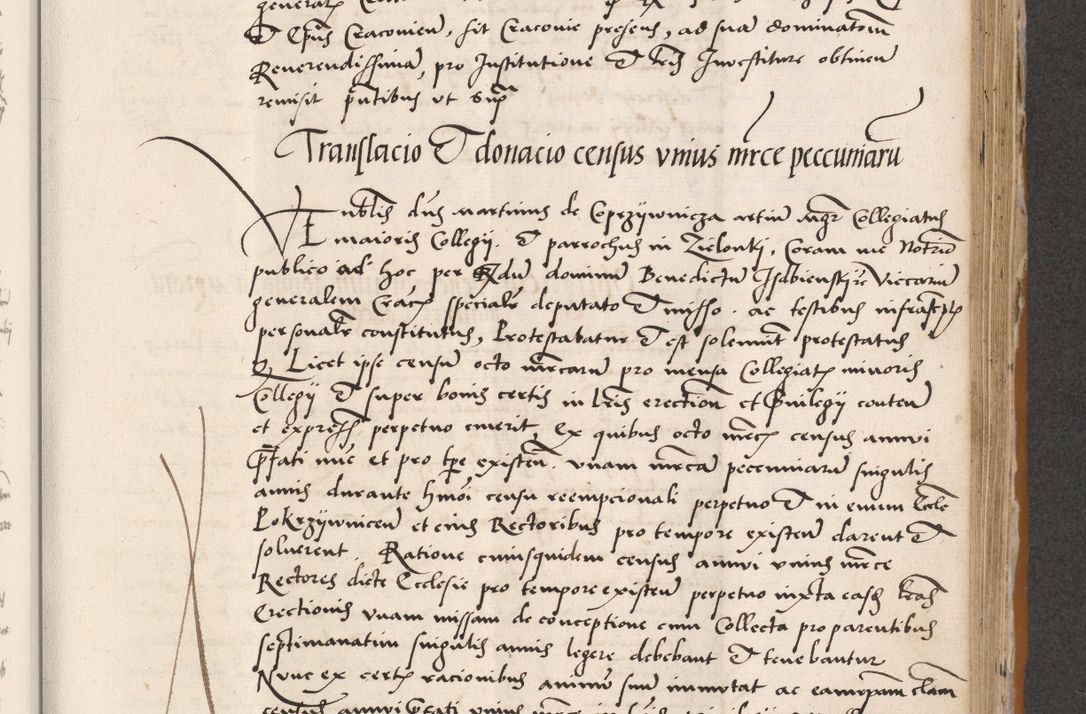 Et Epūs Cracovien̄, sit Cracovie presens, ad suā dominatōm
Reverendissimā, pro Institutione et lrīs Investiture obtinen̄
remisit pn̄tibus ut supra
Translacio et donacio census unius mr̄ce peccuniarū
Vēnēblis dn̄s Martinus de Coprzywnicza artiū mgr̄ Collegiatus
maioris Collegij et parrochus in Zielonki, Coram me Notrio
publico ad hoc per Rdū dominū Benedictū Isdbienskj Vicariū
generalem Crac̄ specialr̄ deputato et misso ac testibus infrascrptis
personalr̄ constitutus, Protestabatur et est solennit̄ protestatus
q̄ Licet ipse censū octo mr̄carū pro mensa Collegiat̄ minoris
Collegij et super bonis certis in lrīs erection̄ et Privilegij conten̄
et express̄ perpetuo emerit, Ex quibus octo mr̄c̄ census annui
p̄fati nūc et pro tp̄e existen̄ unam mr̄cā pecuniarū singulis
annis durante hmōi censu reempcionali perpetuo et in evum Eccl̄e
Pokrzywnicen̄ et eius Rectoribus pro tempore existen̄ darent et
solverent. Ratione cuiusquidem census annui unius mr̄ce
Rectores dicte Ecclesie pro tempore existen̄ perpetuo iuxta easd̄ lrās
Erectionis unam missam de conceptione cum Collecta pro parentibus
septimanatim singulis annis legere debebant et tenebantur
Nunc ex certis racionibus animū suū immutat ac eamrpam
census annui p̄fati unius mr̄ce